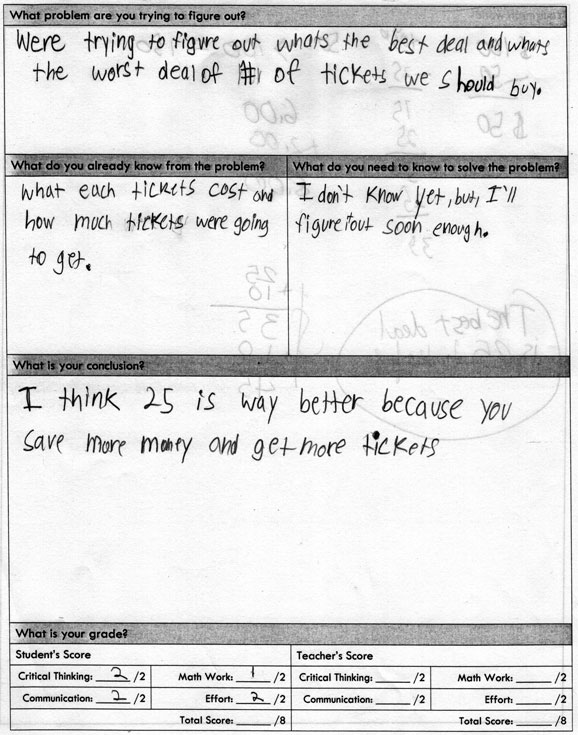 What problem are you trying to figure out?
Were trying to figure out whats the best deal and whats
the worst deal of # of tickets we should buy.
What do you already know from the problem?
what each tickets cost and
how much tickets were going
to get.
What do you need to know to solve the problem?
I don't know yet, but, I'll
figure it out soon enough.
What is your conclusion?
I think 25 is way better because you
save more money and get more tickets
What is your grade?
Student's Score
Critical Thinking: 2 /2 Math Work: 1 /2
Communication: 2 /2 Effort: 2 /2
Total Score: /8
Teacher's Score
Critical Thinking: /2 Math Work: /2
Communication: /2 Effort: /2
Total Score: /8